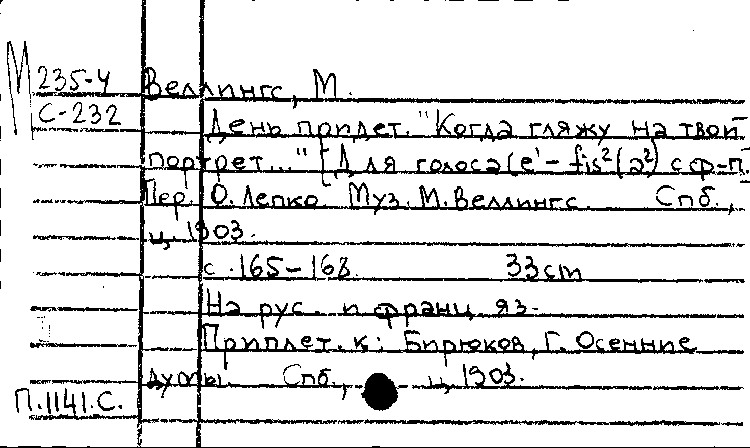 М 235-4 Веллингс, М.
С-232
День придет. "Когда гляжу на твой
портрет..." [Для голоса (e¹ – fis² (a²) с ф-п.
Пер. О. Лепко. Муз. М. Веллингс. Спб.,
ц. 1903.
с. 165-168. 33cm
На рус. и франц. яз.
Приплет. к: Бирюков, Г. Осенние
думы. Спб., ц. 1903.
П.1141.С.